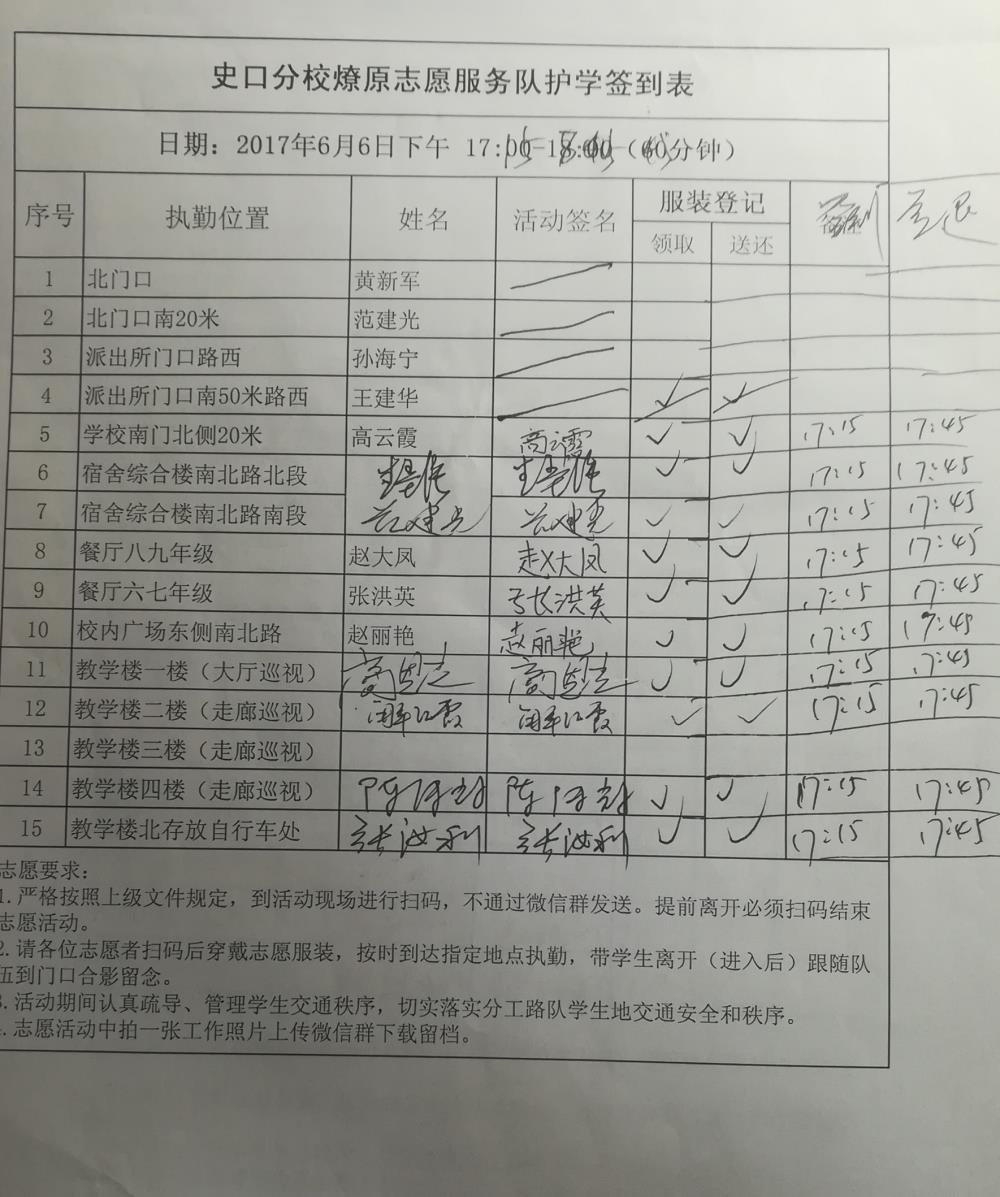 史口分校燎原志愿服务队护学签到表
日期：2017年6月6日下午 17:00-18:00（60分钟）
序号 执勤位置 姓名 活动签名 服装登记
领取 送还
1 北门口 黄新军
2 北门口南20米 范建光
3 派出所门口路西 孙海宁
4 派出所门口南50米路西 王建华 ✓ ✓
5 学校南门北侧20米 高云霞 高云霞 ✓ ✓ 17:15 17:45
6 宿舍综合楼南北路北段 ✓ ✓ 17:15 17:45
7 宿舍综合楼南北路南段 ✓ ✓ 17:15 17:45
8 餐厅八九年级 赵大凤 赵大凤 ✓ ✓ 17:15 17:45
9 餐厅六七年级 张洪英 张洪英 ✓ ✓ 17:15 17:45
10 校内广场东侧南北路 赵丽艳 赵丽艳 ✓ ✓ 17:15 17:45
11 教学楼一楼（大厅巡视） ✓ ✓ 17:15 17:45
12 教学楼二楼（走廊巡视） ✓ ✓ 17:15 17:45
13 教学楼三楼（走廊巡视）
14 教学楼四楼（走廊巡视） ✓ ✓ 17:15 17:45
15 教学楼北存放自行车处 ✓ ✓ 17:15 17:45
志愿要求：
1.严格按照上级文件规定，到活动现场进行扫码，不通过微信群发送。提前离开必须扫码结束
志愿活动。
2.请各位志愿者扫码后穿戴志愿服装，按时到达指定地点执勤，带学生离开（进入后）跟随队
伍到门口合影留念。
3.活动期间认真疏导、管理学生交通秩序，切实落实分工路队学生地交通安全和秩序。
4.志愿活动中拍一张工作照片上传微信群下载留档。